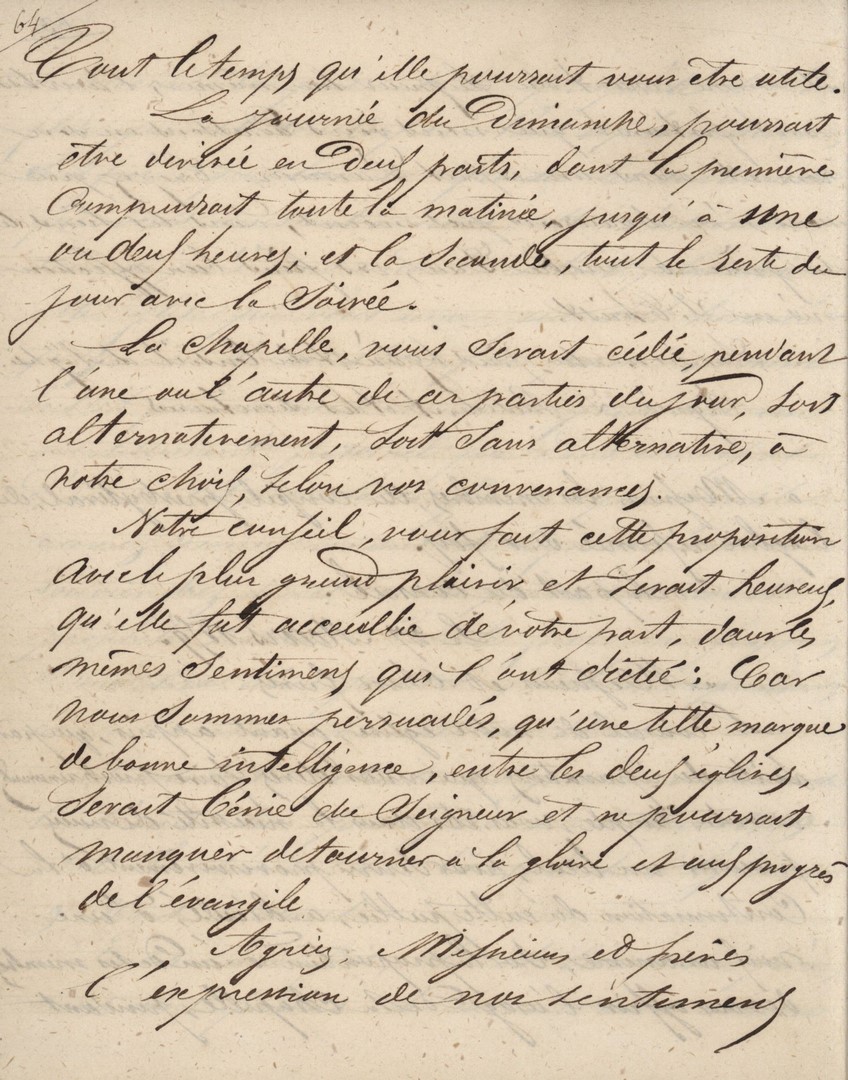 64
Tout le temps qu'elle pourrait vous être utile.
La journée du Dimanche, pourrait
être divisée en Deux parts, dont la première
Comprendrait toute la matinée, jusqu'à une
ou deux heures; et la Seconde, tout le reste du
jour avec la Soirée.
La chapelle, vous Serait cédée, pendant
l'une ou l'autre de ces parties du jour, soit
alternativement, soit Sans alternative, à
notre choix, selon vos convenances.
Notre conseil, vous fait cette proposition
Avec le plus grand plaisir et Serait heureux,
qu'elle fut acceuillie de votre part, dans les
mêmes Sentimens qui l'ont dictée: Car
nous Sommes persuadés, qu'une telle marque
de bonne intelligence, entre les deux églises,
Serait bénie du Seigneur et ne pourrait
manquer de tourner à la gloire et aux progrès
de l'évangile
Agréez, Messieurs et frères
L'expression de nos sentimens